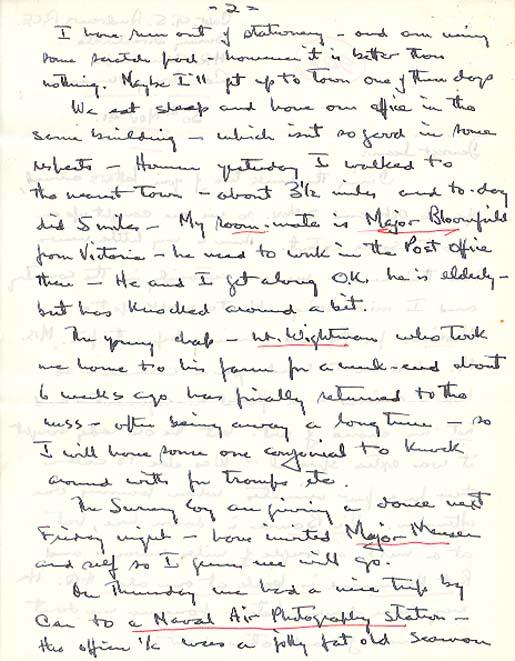 - 2 -
I have run out of stationery - and am using
some scratch pad - however it is better than
nothing. Maybe I'll get up to town one of these days
We eat sleep and have our office in the
same building - which isn't so good in some
respects - However yesterday I walked to
the nearest town - about 3½ miles and to-day
did 5 miles - My room-mate is Major Bloomfield
from Victoria - he used to work in the Post Office
there - He and I get along O.K. he is elderly -
but has knocked around a bit.
The young chap - Lt. Wightman who took
me home to his farm for a week-end about
6 weeks ago has finally returned to the
mess - after being away a long time - so
I will have some one congenial to knock
around with for tramps etc.
The Survey Coy are giving a dance next
Friday night - have invited Major
and self so I guess we will go.
On Thursday we had a nice trip by
Car to a Naval Air Photography Station -
the officer i/c was a jolly fat old seaman